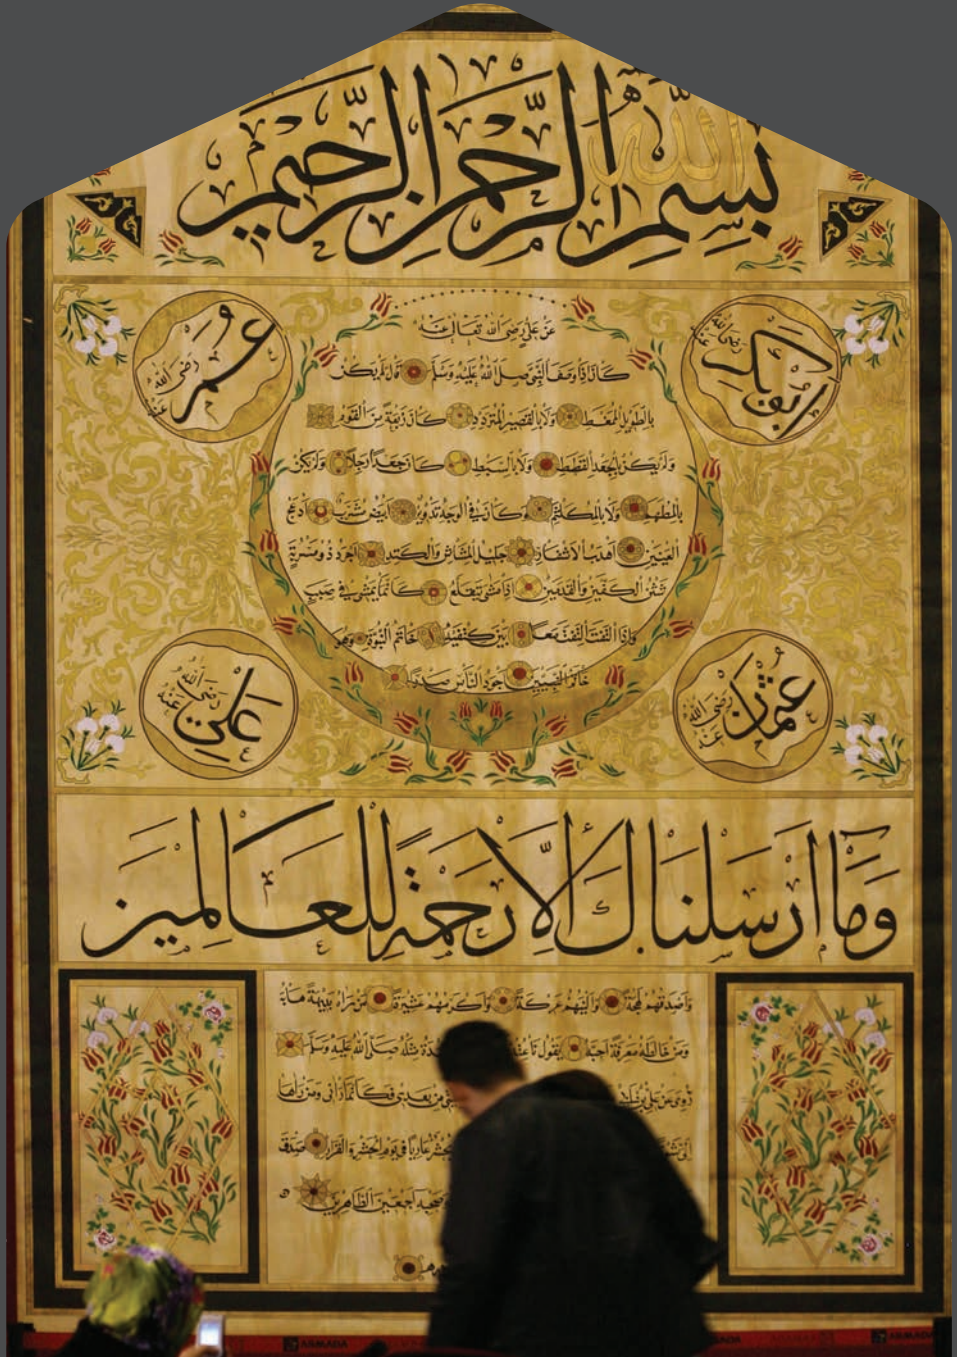 بسم الله الرحمن الرحيم
ابو بكر رضي الله عنه
عمر رضي الله عنه
عن علي رضي الله تعالى عنه
كان اذا وصف النبي صلى الله عليه وسلم قال لم يكن
بالطويل الممغط ولا بالقصير المتردد كان ربعة من القوم
ولم يكن بالجعد القطط ولا بالسبط كان جعدا رجلا ولم يكن
بالمطهم ولا بالمكلثم وكان في الوجه تدوير ابيض مشرب ادعج
العينين اهدب الاشفار جليل المشاش والكتد اجرد ذو مسربة
شثن الكفين والقدمين اذا مشى يتقلع كأنما يمشي في صبب
واذا التفت التفت معا بين كتفيه خاتم النبوة وهو
خاتم النبيين اجود الناس صدرا
عثمان رضي الله عنه
علي رضي الله عنه
وما ارسلناك الا رحمة للعالمين
واصدقهم لهجة والينهم عريكة واكرمهم عشيرة من رآه بديهة هابه
ومن خالطه معرفة احبه يقول مثله صلى الله عليه وسلم
روي عن علي من بعدي فكأنما رآني ومن رآها
عاريا في يوم الحشر والقرار صدق
وصحبه اجمعين الطاهرين
ARMADA
ARMADA